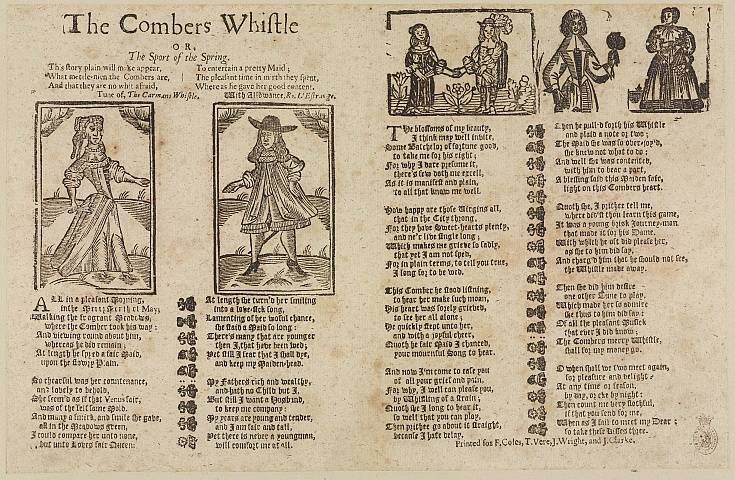 The Combers Whistle
OR,
The Sport of the Spring.
This story plain will make appear,
What mettle-men the Combers are,
And that they are no whit afraid,
To entertain a pretty Maid;
The pleasant time in mirth they spent,
Whereas he gave her good content.
Tune of, The Carmans Whistle.
With Allowance, Ro. L'Estrange.
ALL in a pleasant Morning,
in the Merry Month of May;
Walking the fragrant Meadows,
where the Comber took his way:
And viewing round about him,
whereas he did remain;
At length he spyed a fair Maid,
upon the Plain.
So chearful was her countenance,
and lovely to behold,
She seem'd as if that Venus fair,
was of the self same mold,
And many a smirk, and smile she gave,
all in the Meadows green,
I could compare her unto none,
but unto Loves fair Queen.
At length she turn'd her smiling
into a love-sick song,
Lamenting of her woful chance,
she said a Maid so long:
There's many that are younger
then I, that have been wed;
Yet still I fear that I shall dye,
and keep my Maiden-head.
My Fathers rich and wealthy,
and hath no Child but I,
But still I want a Husband,
to keep me company:
My years are young and tender,
and I am fair and tall,
Yet there is never a youngman,
will comfort me at all.
The blossoms of my beauty,
I think may well invite,
Some Batchelor of fortune good,
to take me for his right;
For why I dare presume it,
there's few doth me excell,
As it is manifest and plain,
to all that know me well.
How happy are those Virgins all,
that in the City throng,
For they have Sweet-hearts plenty,
and ne'r live single long;
Which makes me grieve so sadly,
that yet I am not sped,
For in plain terms, to tell you true,
I long for to be wed.
This Comber he stood listning,
to hear her make such moan,
His heart was sorely grieved,
to see her all alone;
He quickly stept unto her,
and with a joyful cheer,
Quoth he fair Maid I chanced,
your mournful Song to hear.
And now I'm come to ease you
of all your grief and pain,
For why, I well can please you,
by Whistling of a strain;
Quoth she I long to hear it,
so well that you can play,
Then prithee go about it straight,
because I hate delay.
Then he pull'd forth his Whistle
and plaid a note or two;
The Maid she was so over-joy'd,
she knew not what to do;
And well she was contented,
with him to bear a part,
A blessing said this Maiden fair,
light on this Combers heart.
Quoth she, I prithee tell me,
where did'st thou learn this game,
It was a young brisk Journey-man
that made it for his Dame.
With which he oft did please her,
as she to him did say;
And charg'd him that he should not see,
the Whistle made away.
Then she did him desire
one other Tune to play,
Which made her so admire
she thus to him did say:
Of all the pleasant Musick
that ever I did know;
The Combers merry Whistle,
shall for my money go.
O when shall we two meet again,
for pleasure and delight?
At any time or season,
by day, or else by night:
Then count me very slothful,
if that you send for me,
When as I fail to meet my Dear;
so take these kisses three.
Printed for F. Coles, T. Vere, J. Wright, and J. Clarke.